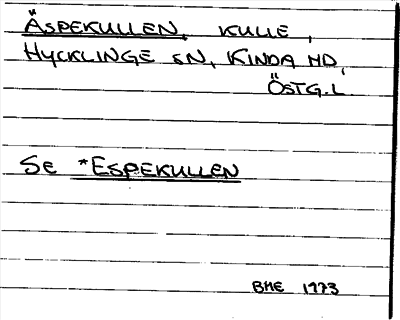 ÄSPEKULLEN, KULLE,
HYCKLINGE SN, KINDA HD,
ÖSTG.L.
Se *ESPEKULLEN
BHE 1973